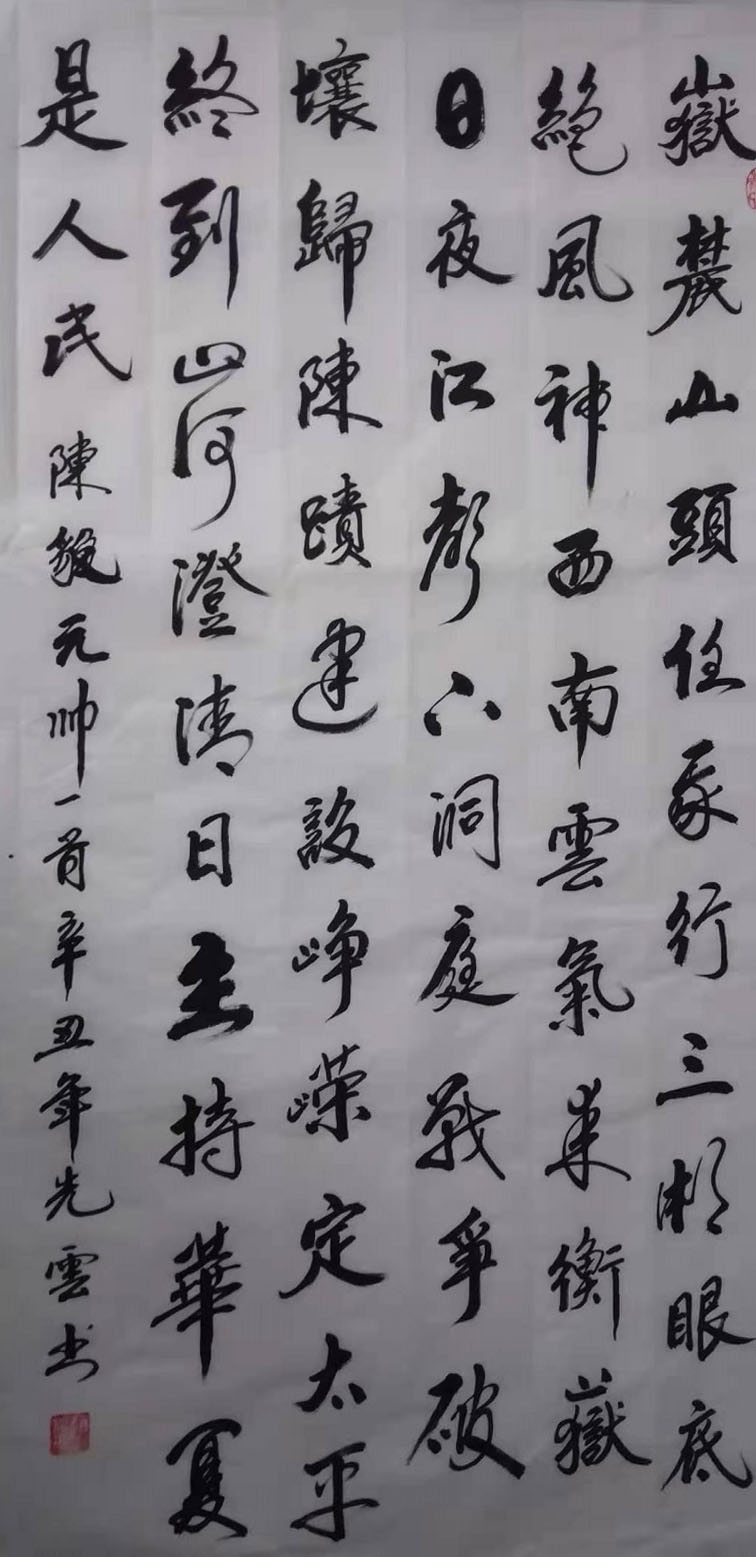 嶽麓山頭任我行三湘眼底
絶風神西南雲氣來衡嶽
日夜江聲下洞庭戰爭破
壞歸陳蹟建設崢嶸定太平
終到山河澄清日主持華夏
是人民 陳毅元帥一首辛丑年先雲书